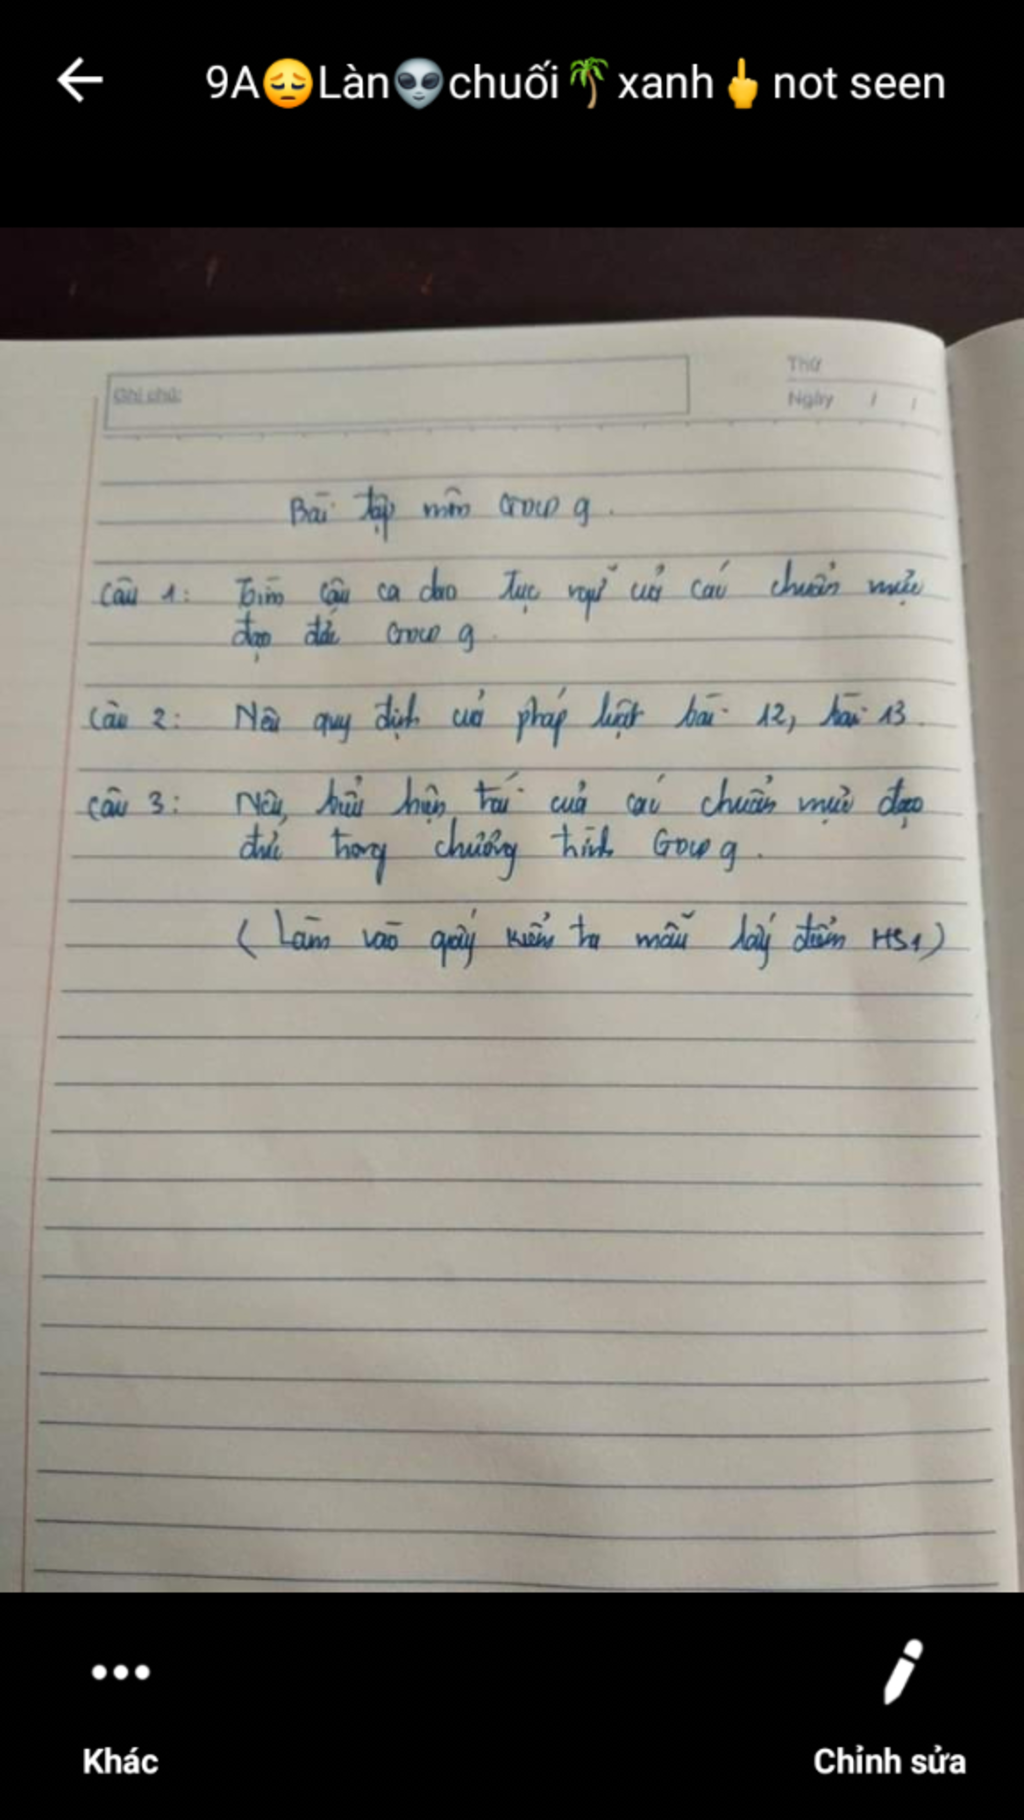 9A😔Làn👽chuối🌴xanh🖕not seen
Ghi chú:
Thứ
Ngày / /
Bài tập môn GDCD 9.
Câu 1: Tìm câu ca dao tục ngữ của các chuẩn mực
đạo đức GDCD 9.
Câu 2: Nêu quy định của pháp luật bài 12, bài 13.
Câu 3: Nêu, biểu hiện trái của các chuẩn mực đạo
đức trong chương trình GDCD 9.
(Làm vào giấy kiểm tra mẫu lấy điểm HS1)
Khác
Chỉnh sửa